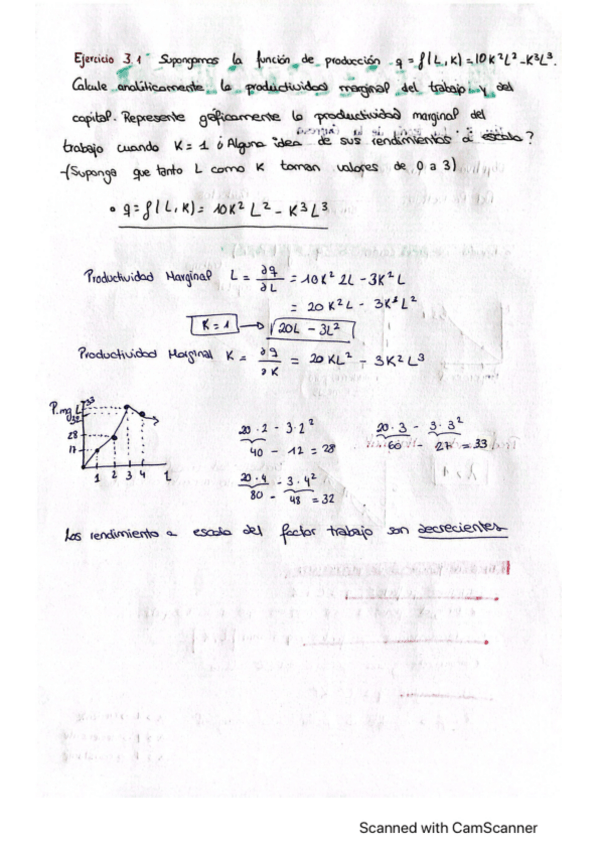 Ejercicio 3.1 Supongamos la función de producción q = f(L, K) = 10K²L² - K³L³.
Calcule analíticamente la productividad marginal del trabajo y del
capital. Represente gráficamente la productividad marginal del
trabajo cuando K = 1 ¿Alguna idea de sus rendimientos a escala?
-(Suponga que tanto L como K toman valores de 0 a 3)
• q = f(L, K) = 10K²L² - K³L³
Productividad Marginal L = ∂q/∂L = 10K² 2L - 3K²L
= 20K²L - 3K³L²
K = 1 → 20L - 3L²
Productividad Marginal K = ∂q/∂K = 20KL² - 3K²L³
P.mg L
33
32
28
17
1 2 3 4 L
20·2 - 3·2²
40 - 12 = 28
20·3 - 3·3²
60 - 27 = 33
20·4 - 3·4²
80 - 48 = 32
Los rendimiento a escala del factor trabajo son decrecientes
Scanned with CamScanner